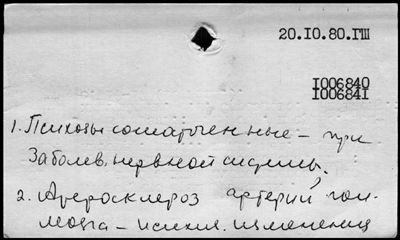 20.10.80.ГШ
1006840
1006841
1. Психозы соматогенные – при
заболев. нервной системы.
2. Атеросклероз артерий гол.
мозга – психич. изменения